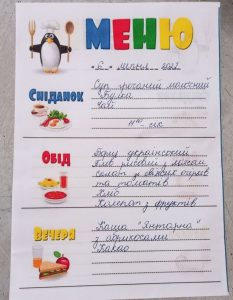 МЕНЮ
"6" липня 2022
СНІДАНОК
Суп гречаний молочний
Булка
Чай
11⁰⁰ - сік
ОБІД
Борщ український
Плов рисовий з мясом
салат з свіжих огірків
та томатів
Хліб
Компот з фруктів
ВЕЧЕРЯ
Каша "Янтарна"
з абрикосами
Какао